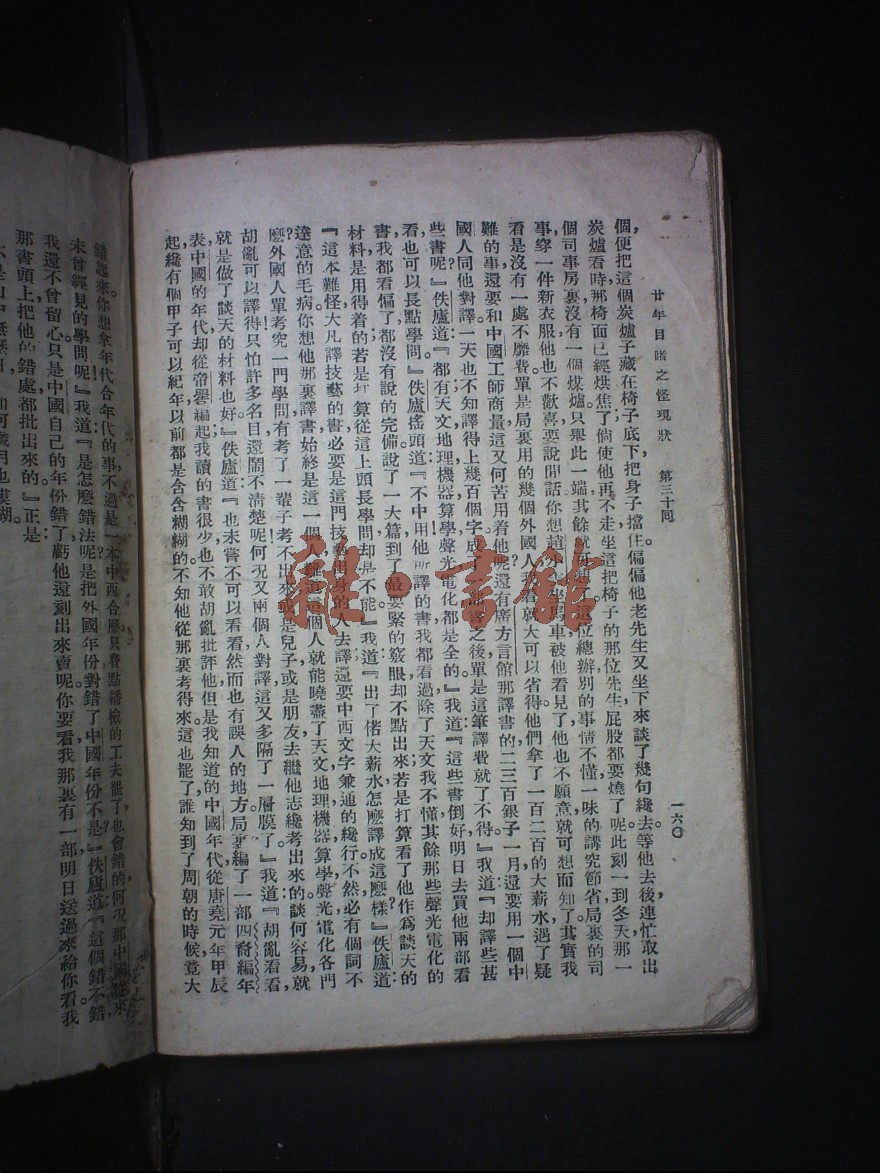 廿年目睹之怪現狀　第三十回　一六〇
個，便把這個炭爐子藏在椅子底下，把身子擋住。偏偏他老先生又坐下來談了幾句纔去。等他去後，連忙取出
炭爐看時，那椅面已經烘焦了。倘使他再不走，坐這把椅子的那位先生，屁股都要燒了呢。此刻一到冬天，那一
個司事房裏沒有一個煤爐，只舉此一端，其餘就可想。這位總辦，別的事情不懂，一味的講究節省，局裏的司
事穿一件新衣服，他也不歡喜，要說閒話。你想趙小坐馬車被他看見了，他也不願意，就可想而知了。其實我
看是沒有一處不靡費，單是局裏用的幾個外國人，我看就大可以省得。他們拿了一百二百的大薪水，遇了疑
難的事，還要和中國工師商量，這又何苦用着他呢？還有廣方言館那譯書的，二三百銀子一月，還要用一個中
國人同他對譯，一天也不知譯得上幾百個字。成了一部書之後，單是這筆譯費就了不得。』我道：『却譯些甚
些書呢？』佚廬道：『都有，天文、地理、機器、算學、聲光、電化都是全的。』我道：『這些書倒好，明日去買他兩部看
看，也可以長點學問。』佚廬搖頭道：『不中用，他所譯的書，我都看過，除了天文我不懂，其餘那些聲光電化的
書，我都看偏了，都沒有說的完備。說了一大篇，到了最要緊的竅眼，却不點出來。若是打算看了他作爲談天的
材料，是用得着的；若是打算從這上頭長學問，却是不能。』我道：『出了偌大薪水，怎麽譯成這麽樣？』佚廬道：
『這本難怪。大凡譯技藝的書，必要是這門技藝出身的人去譯，還要中西文字兼通的纔行。不然，必有個詞不
達意的毛病。你想，他那裏譯書，始終是這一個人，難道這個人就能曉盡了天文、地理、機器、算學、聲光、電化各門
麽？外國人單考究一門學問，有考了一輩子考不出來，或是兒子，或是朋友，去繼他志纔考出來的。談何容易，就
胡亂可以譯得！只怕許多名目還鬧不清楚呢。何況又兩個人對譯，這又多隔了一層膜了。』我道：『胡亂看看，
就是做了談天的材料也好。』佚廬道：『也未嘗不可以看看，然而也有誤人的地方。局裏編了一部四裔編年
表，中國的年代，却從帝嚳編起。我讀的書很少，也不敢胡亂批評他，但是我知道的，中國年代，從唐堯元年甲辰
起，纔有個甲子可以紀年，以前都是含含糊糊的，不知他從那裏考得來。這也罷了。誰知到了周朝的時候，竟大
錯起來。你想，拿年代合年代的事，不過是一本中西合歷，只費點繙檢的工夫罷了，也會錯的，何況那中國從來
未曾經見的學問呢？』我道：『是怎麽錯法呢？是把外國年份對錯了中國年份不是？』佚廬道：『這個錯不錯，
我還不曾留心。只是中國自己的年份錯了，虧他還刻出來賣呢。你要看，我那裏有一部，明日送過來給你看。我
那書頭上，把他的錯處，都批出來的。』正是：